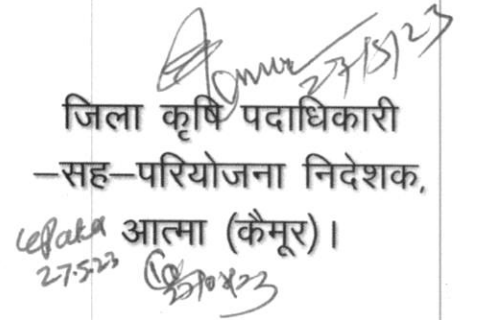 27/5/23
जिला कृषि पदाधिकारी
–सह–परियोजना निदेशक,
आत्मा (कैमूर)।
27.5.23